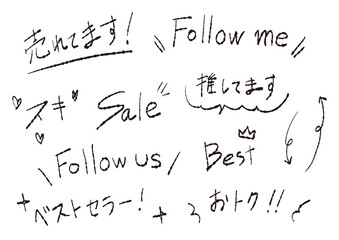 売れてます！
Follow me
スキ
Sale
推してます
Follow us
Best
ベストセラー！
おトク!!